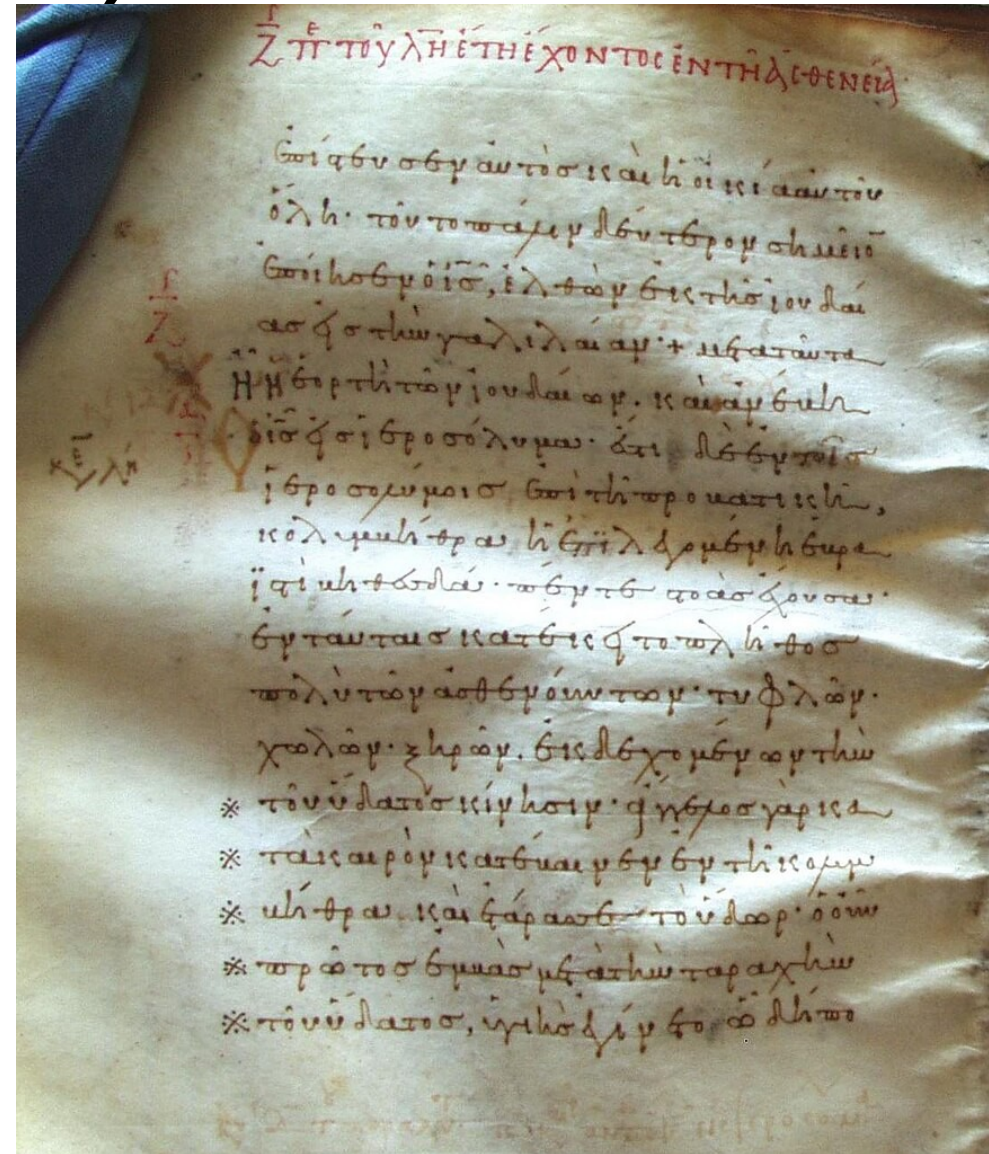 Ζ πε τοῦ λη ἔτη ἔχοντος ἐν τῆ ἀσθενεία
ἐπίστευσεν αὐτὸς καὶ ἡ οἰκία αὐτοῦ
ὅλη· τοῦτο πάλιν δεύτερον σημεῖο
ἐποίησεν ὁ ις̅, ἐλθὼν ἐκ τῆς ἰουδαί
ας εἰς τὴν γαλιλαίαν·+ μετὰ ταῦτα
Ζ
ἦν ἡ ἑορτὴ τῶν ἰουδαίων. καὶ ἀνέβη
ὁ ις̅ εἰς ἱεροσόλυμα· ἔστι δὲ ἐν τοῖς
ἱεροσολύμοις ἐπὶ τῆ προβατικῆ,
κολυμβήθρα ἡ ἐπϊλεγομένη ἑβρα
ϊστὶ βηθεσδά· πέντε στοὰς ἔχουσα·
ἐν ταύταις κατέκειτο πλῆθος
πολὺ τῶν ἀσθενούντων· τυφλῶν·
χωλῶν· ξηρῶν. ἐκδεχομένων τὴν
※ τοῦ ὕδατος κίνησιν· ἄγγελος γὰρ κα
※ τὰ καιρὸν κατέβαινεν ἐν τῆ κολυμ
※ βήθρα καὶ ἐτάρασσε τὸ ὕδωρ· ὁ οὖν
※ πρῶτος ἐμβὰς μετὰ τὴν ταραχὴν
※ τοῦ ὕδατος, ὑγιὴς ἐγίνετο, ὧ δήπο